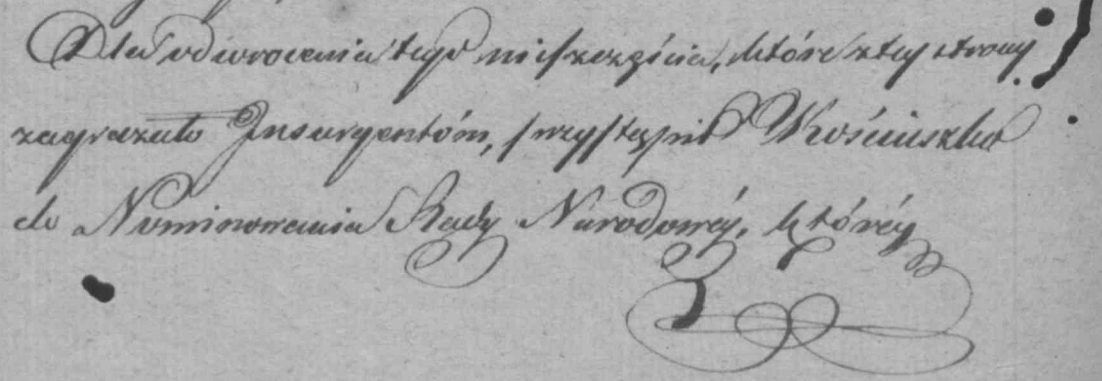 Dla odwrocenia tego nieszczęścia, które z tey strony
zagrażało Insurgentóm, przystąpił Kościuszko
do Nominowania Rady Narodowéy, któréy